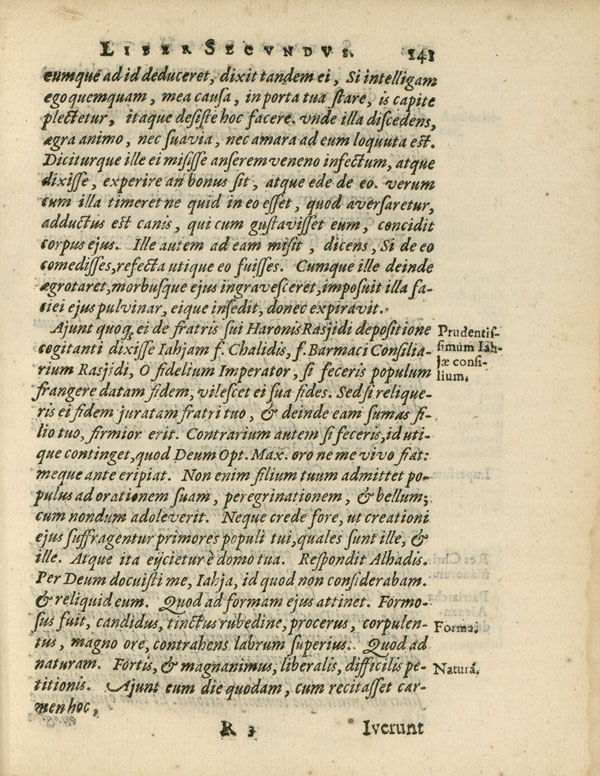 LIBER SECVNDVS. 141
eumque ad id deduceret, dixit tandem ei, Si intelligam
ego quemquam, mea causa, in porta tua stare, is capite
plectetur, itaque desiste hoc facere. vnde illa discedens,
ægra animo, nec suavia, nec amara ad eum loquuta est.
Diciturque ille ei misisse anserem veneno infectum, atque
dixisse, experire an bonus sit, atque ede de eo. verum
cum illa timeret ne quid in eo esset, quod aversaretur,
adductus est canis, qui cum gustavisset eum, concidit
corpus ejus. Ille autem ad eam misit, dicens, Si de eo
comedisses, refecta utique eo fuisses. Cumque ille deinde
ægrotaret, morbusque ejus ingravesceret, imposuit illa fa-
ciei ejus pulvinar, eique insedit, donec expiravit.
Ajunt quoq; ei de fratris sui Haronis Rasjidi depositione
cogitanti dixisse Iahjam f. Chalidis, f. Barmaci Consilia-
rium Rasjidi, O fidelium Imperator, si feceris populum
frangere datam fidem, vilescet ei sua fides. Sed si relique-
ris ei fidem juratam fratri tuo, & deinde eam sumas fi-
lio tuo, firmior erit. Contrarium autem si feceris, id uti-
que continget, quod Deum Opt. Max. oro ne me vivo fiat:
meque ante eripiat. Non enim filium tuum admittet po-
pulus ad orationem suam, peregrinationem, & bellum;
cum nondum adoleverit. Neque crede fore, ut creationi
ejus suffragentur primores populi tui, quales sunt ille, &
ille. Atque ita eijcietur è domo tua. Respondit Alhadis.
Per Deum docuisti me, Iahja, id quod non considerabam.
& reliquid eum. Quod ad formam ejus attinet. Formo-
sus fuit, candidus, tinctus rubedine, procerus, corpulen-
tus, magno ore, contrahens labrum superius. Quod ad
naturam. Fortis, & magnanimus, liberalis, difficilis pe-
titionis. Ajunt eum die quodam, cum recitasset car-
men hoc,
R 3 Iverunt
Prudentis-
simum Iah-
jæ consi-
lium.
Forma.
Naturâ.